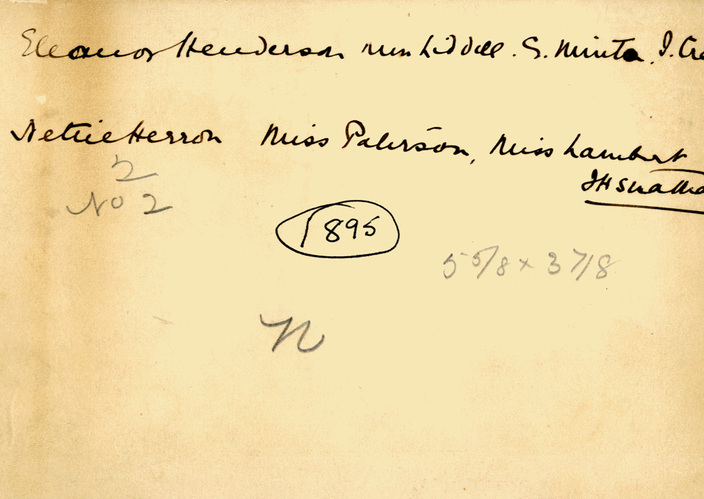 Eleanor Henderson Liddell. G. Minta. J.
Nettie Herron Miss Paterson, Miss Lambert
2
No 2
1895
5 5/8 x 3 7/8
N